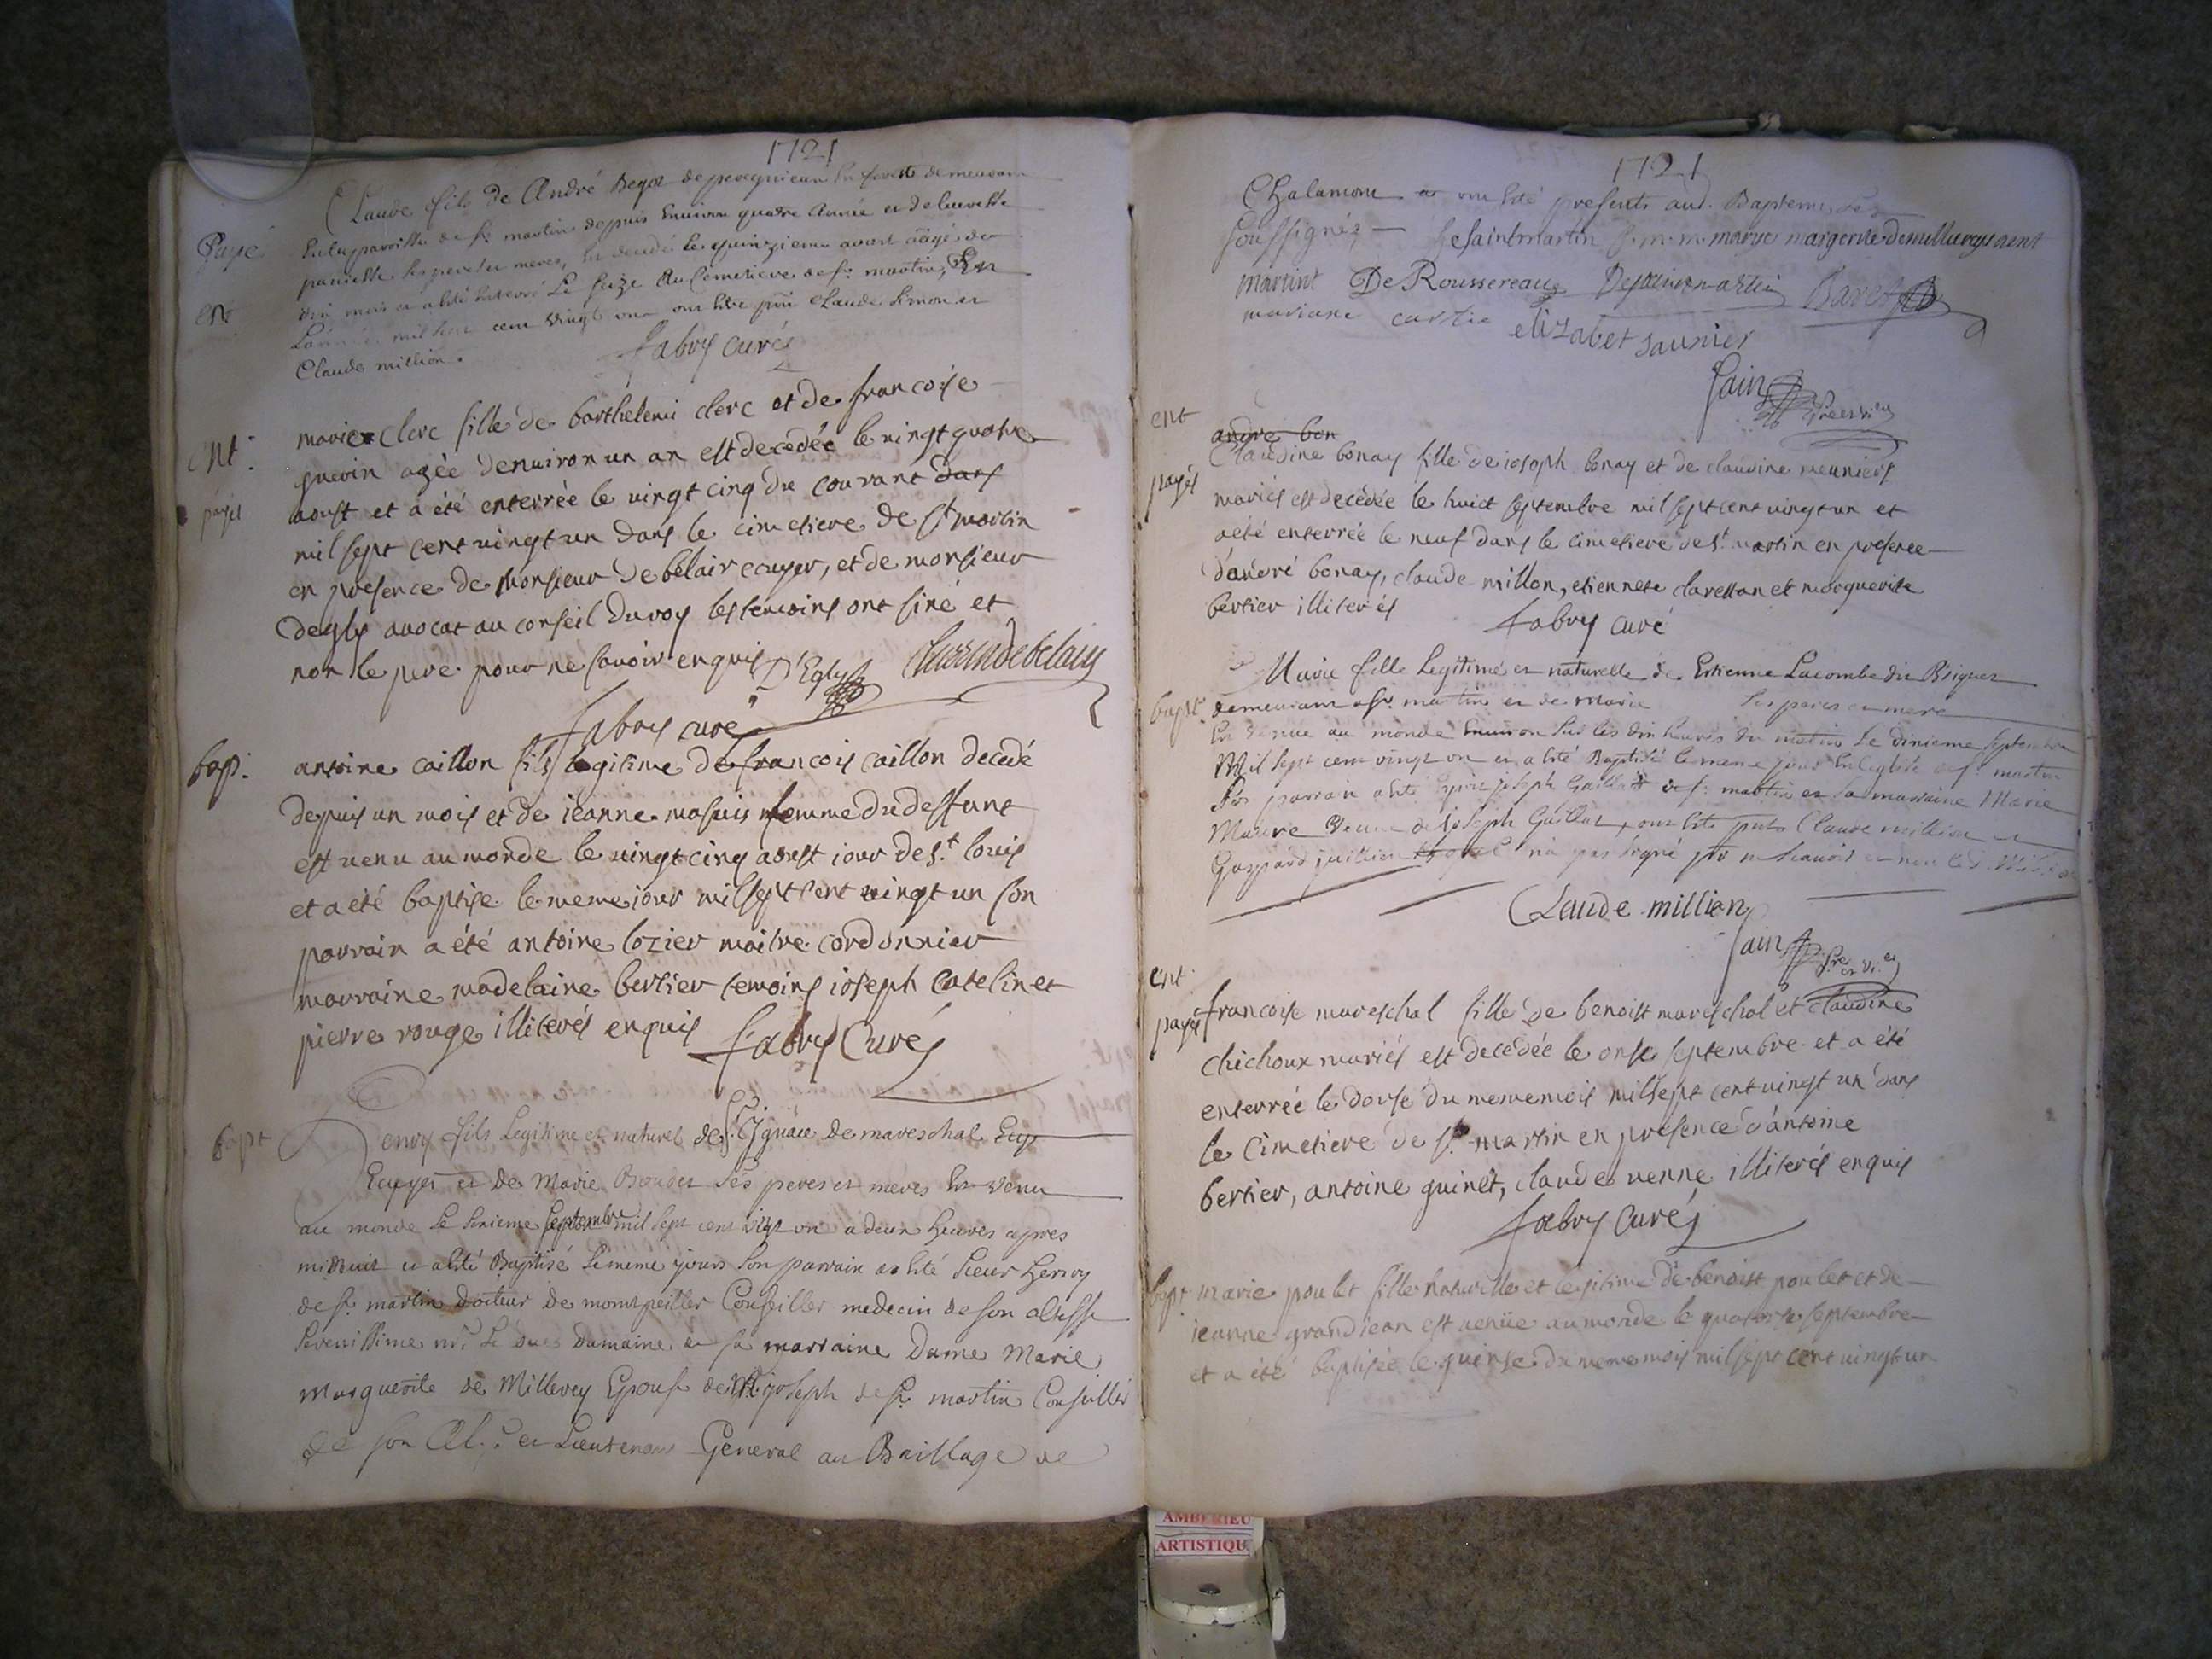 1721
Claude fils de André Begoz de peregnieux en forest demeurant
Payé
en la parroisse de st. martin depuis environ quatre année et de benoiste
ses peres et meres, est decedé le quinzieme aoust aagé de
ent
dix mois et a été enterré Le seize au Cemetiere de st. martin, En
L'année mil sept cent vingt un ont été pnts Claude Simon et
Claude million.
fabry curé
ent.
marie clerc fille de barthelemi clerc et de francoise
guerin agée denuiron un an est decedée le vingt quatre
payés
aoust et a été enterrée le uingt cinq du courant dans
mil sept cent uingt un dans le cimetiere de st martin
en presence de monsieur de belair ecuyer, et de monsieur
degly avocat au conseil du roy les temoins ont siné et
non le pere pour ne savoir enquis D'Egly
fabry curé
bap.
antoine caillon fils legitime de francois caillon decedé
depuis un mois et de ieanne masuis femme du deffunt
est uenu au monde le uingt cinq aoust iour de s.t louis
et a été baptise le meme iour mil sept cent uingt un son
parrain a été antoine lozier maitre cordonnier
marraine madelaine bertier temoins ioseph catelin et
pierre rouge illiterés enquis fabry Curé
bapt
henry fils Legitime et naturel de Sr. Ignace de mareschal Ecuyer
Ecuyer et de Marie ses peres et meres Est venu
au monde Le sixieme septembre mil sept cent vingt un a deux heures apres
minuit et a été Baptisé Le meme jours Son parrain a été sieur Henry
de st. martin docteur de montpeiller Conseiller medecin de son altesse
serenissime mr. Le duc dumaine et sa marraine Dame Marie
Marguerite de Millerey Epouse de Mr. joseph de st. martin Conseiller
de son Al.s. et Lieutenant General au Baillage de
1721
Chalamont et ont été presents aud. Baptemes les
soussignés — Desaintmartin marye margerite demillereysaent
martint De Roussereau Desaintmartin Baret
mariane cartie elizabet saunier
Jain
ent
andre bon
Claudine bonay fille de ioseph bonay et de claudine meuniers
payés
mariés est decédée le huict septembre mil sept cent uingt un et
a été enterrée le neuf dans le cimetiere de st. martin en presence
d'andré bonay, claude millon, etiennete claretton et marguerite
bertier illiterés fabry curé
Marie fille Legitime et naturelle de Estienne Lacombe dit Briquet
bapt.
demeurant a st. martin et de marie ses peres et mere
Est venue au monde environ sur les dix heures du matin Le dixieme septembre
Mil sept cent vingt un et a été Baptisé le meme jour en leglise de st. martin
Son parrain a été joseph Guillat de st. martin et sa marraine Marie
Maure veuve de joseph Guillat, ont été pnts Claude million et
Gaspard juillien n'a pas signé pour ne scavoir
Claude million
Jain
ent.
francoise mareschal fille de benoist mareschal et claudine
payés
chichoux mariés est decedée le onse septembre et a été
enterrée le douse du meme mois mil sept cent uingt un dans
le cimetiere de st martin en presence d'antoine
bertier, antoine guinet, claude uenne illiterés enquis
fabry curé
bapt marie poulet fille naturelle et legitime de benoist poulet et de
ieanne grandiean est uenüe au monde le quatorse septembre
et a été baptisée le quinse du meme mois mil sept cent uingt un
AMBERIEU
ARTISTIQU